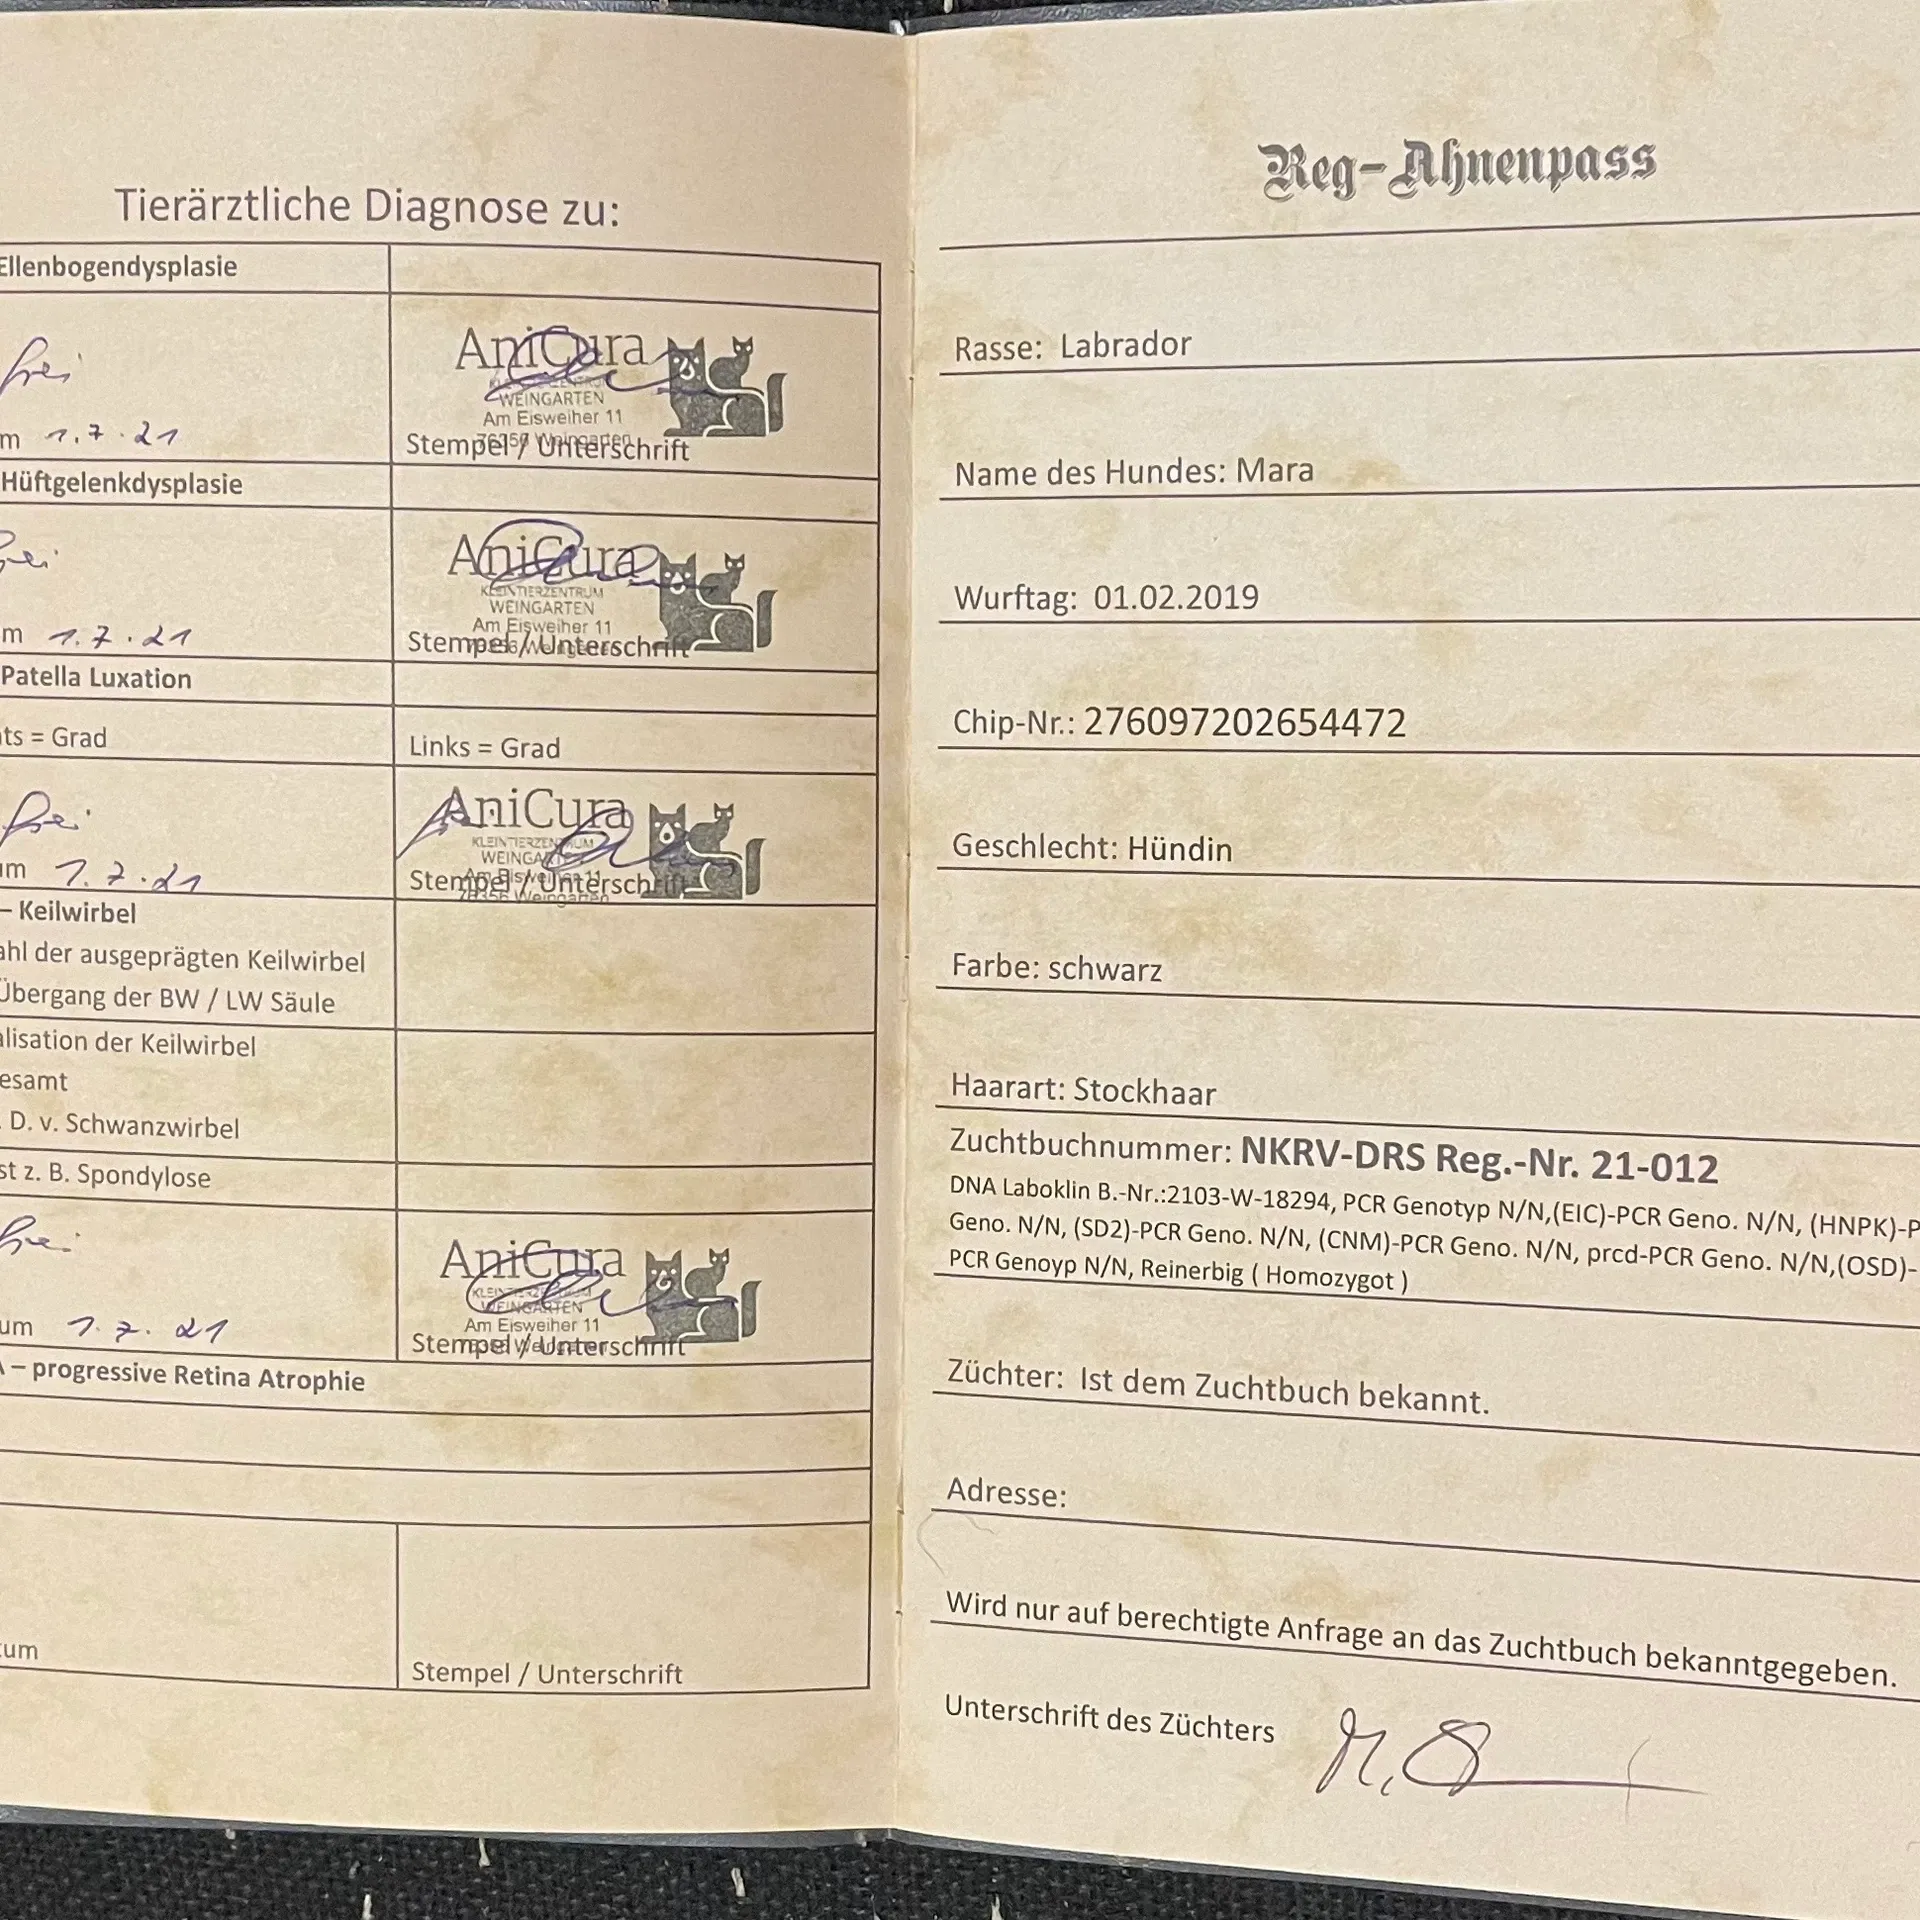 Tierärztliche Diagnose zu:
Ellenbogendysplasie
frei
AniCura
WEINGARTEN
Am Eisweiher 11
m 1.7.21
Stempel / Unterschrift
Hüftgelenkdysplasie
frei
AniCura
KLEINTIERZENTRUM
WEINGARTEN
Am Eisweiher 11
m 1.7.21
Stempel / Unterschrift
Patella Luxation
ts = Grad
Links = Grad
frei
AniCura
KLEINTIERZENTRUM
WEINGARTEN
Am Eisweiher 11
um 1.7.21
Stempel / Unterschrift
78356 Weingarten
– Keilwirbel
ahl der ausgeprägten Keilwirbel
Übergang der BW / LW Säule
alisation der Keilwirbel
esamt
. D. v. Schwanzwirbel
st z. B. Spondylose
frei
AniCura
WEINGARTEN
Am Eisweiher 11
um 1.7.21
Stempel / Unterschrift
A – progressive Retina Atrophie
tum
Stempel / Unterschrift
Reg-Ahnenpass
Rasse: Labrador
Name des Hundes: Mara
Wurftag: 01.02.2019
Chip-Nr.: 276097202654472
Geschlecht: Hündin
Farbe: schwarz
Haarart: Stockhaar
Zuchtbuchnummer: NKRV-DRS Reg.-Nr. 21-012
DNA Laboklin B.-Nr.:2103-W-18294, PCR Genotyp N/N,(EIC)-PCR Geno. N/N, (HNPK)-P
Geno. N/N, (SD2)-PCR Geno. N/N, (CNM)-PCR Geno. N/N, prcd-PCR Geno. N/N,(OSD)-
PCR Genoyp N/N, Reinerbig ( Homozygot )
Züchter: Ist dem Zuchtbuch bekannt.
Adresse:
Wird nur auf berechtigte Anfrage an das Zuchtbuch bekanntgegeben.
Unterschrift des Züchters